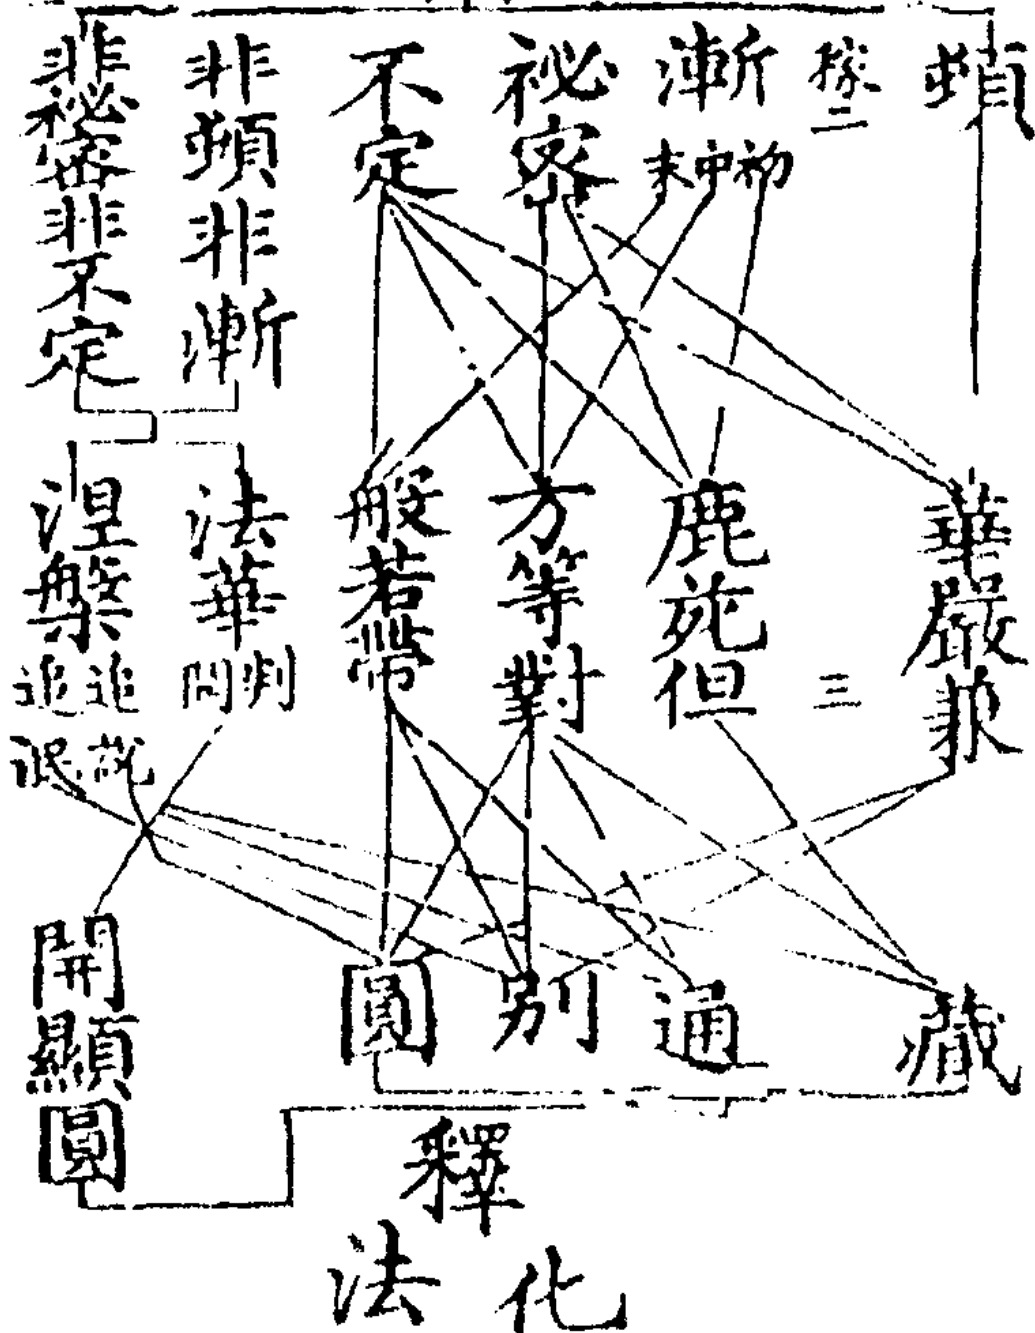 頓
漸
初
中
末
祕密
不定
非頓非漸
非秘密非不定
華嚴兼
三
鹿苑但
方等對
般若帶
法華
涅槃
追
追
泯
藏
通
別
圓
開顯圓
釋
化
法